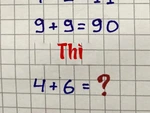 9+9=90
Thì
4+6=?